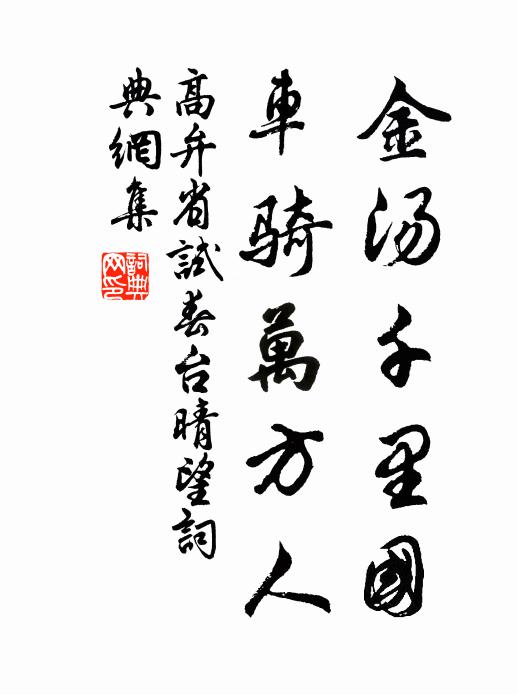 金汤千里國
車騎萬方人
高弁省試春台晴望詞
典網集
詞典
网印